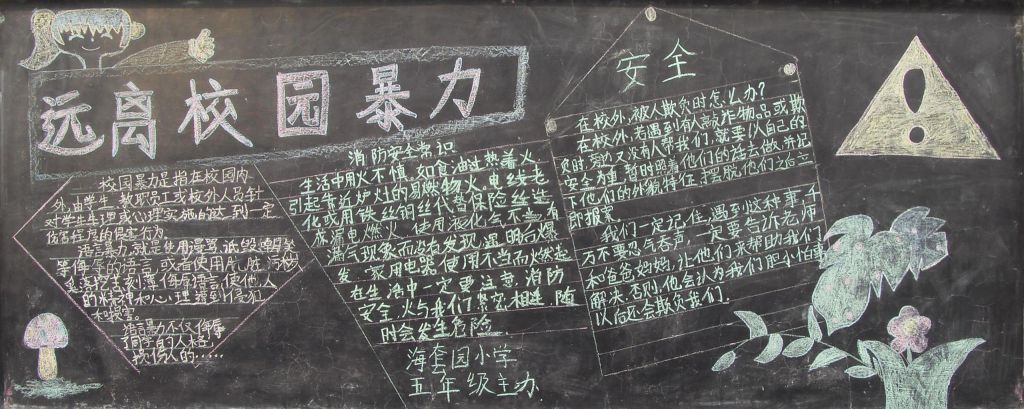 远离校园暴力
校园暴力是指在校园内
外由学生、教职员工或校外人员针
对学生生理或心理实施的达到一定
伤害程度的侵害行为
语言暴力,就是使用谩骂、诋毁
等侮辱的语言,
人的精神和心理遭到侵犯
和损害。
语言暴力不仅侮辱
同学的人格,
消防安全常识
生活中用火不慎,如食油过热着火,
引起靠近炉灶的易燃物火。电线老
化或用铁丝铜丝代替保险丝造
成漏电燃火。使用液化气不当,有
漏气现象而没有发现,遇明火爆
发。家用电器使用不当而燃起
在生活中一定要注意消防
安全,火与我们紧密相连,随
时会发生危险。
海套园小学
五年级主办
安全
在校外,被人欺负时怎么办?
在校外,若遇到有人敲诈物品或欺
负时,旁边又没有人帮我们,就要以自己的
安全为重,暂时照着他们的话去做,并记
下他们的外貌特征,摆脱他们之后立
即报案。
我们一定记住,遇到这种事,千
万不要忍气吞声,一定要告诉老师
和爸爸妈妈,让他们来帮助我们
解决,否则,他会认为我们胆小怕事,
以后还会欺负我们。